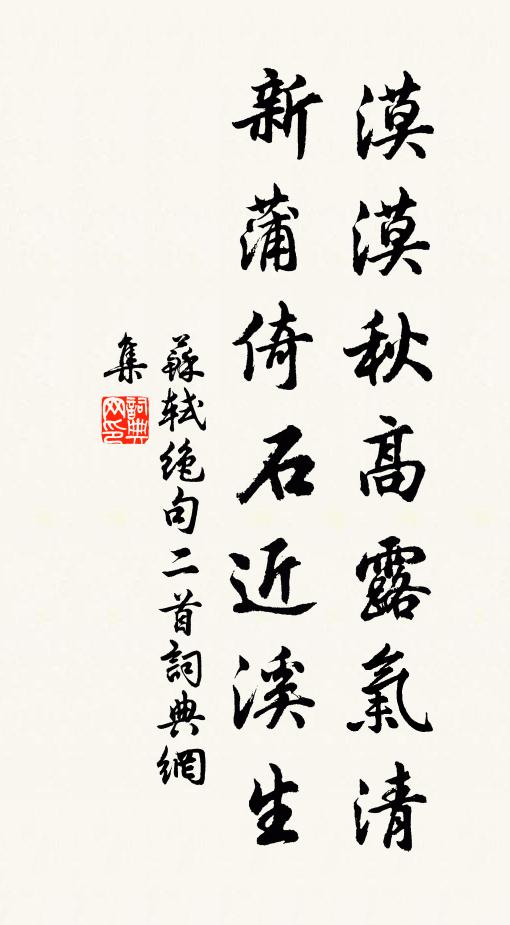 漠漠秋高露氣清
新蒲倚石近溪生
蘇軾絕句二首詞典網
集
詞典
网印